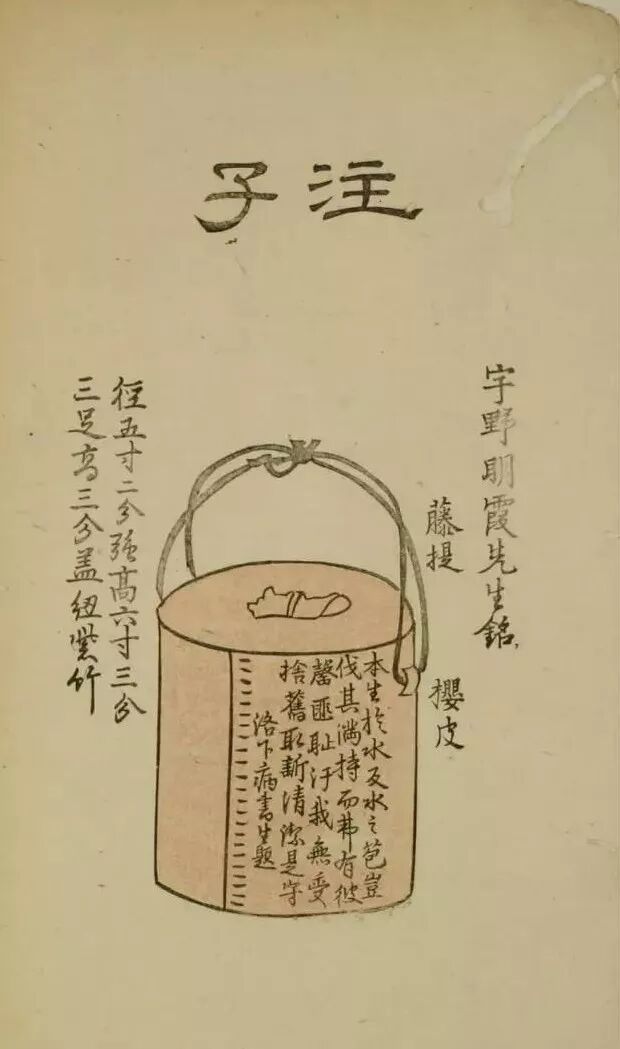 注子
宇野明霞先生銘
藤提
櫻皮
本生於水及水之苞豈
伐其滿持而弗有彼
罄匪耻汙我無受
捨舊取新清潔是守
洛下病書生題
徑五寸二分强高六寸三分
三足高三分盖紐紫竹